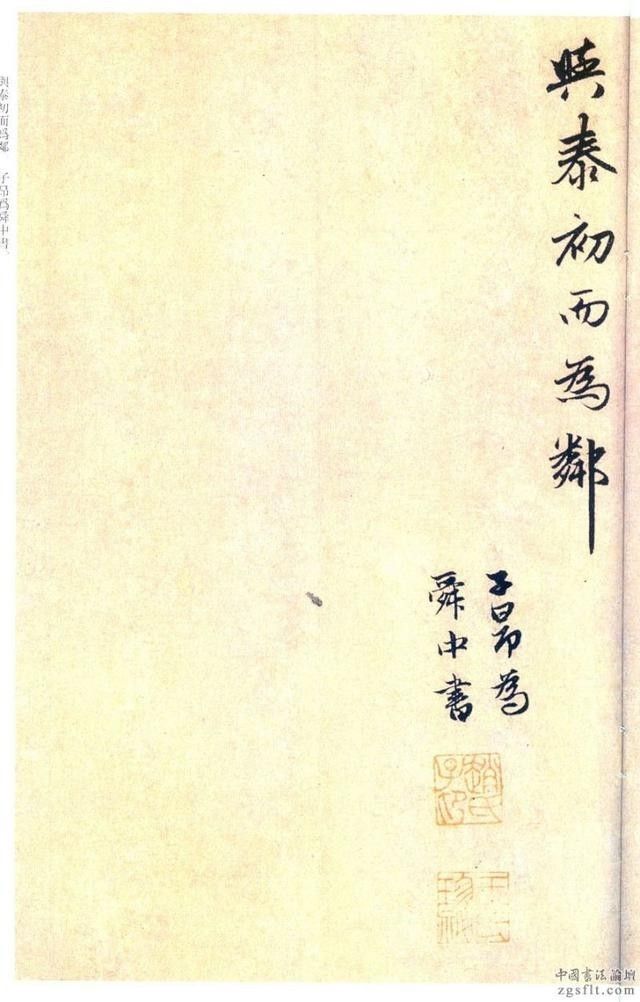 與泰初而為鄰
子昂為
舜中書
趙氏子昂
與泰初而爲鄰　子昂爲舜中書。
中國書法論壇
zgsflt.com